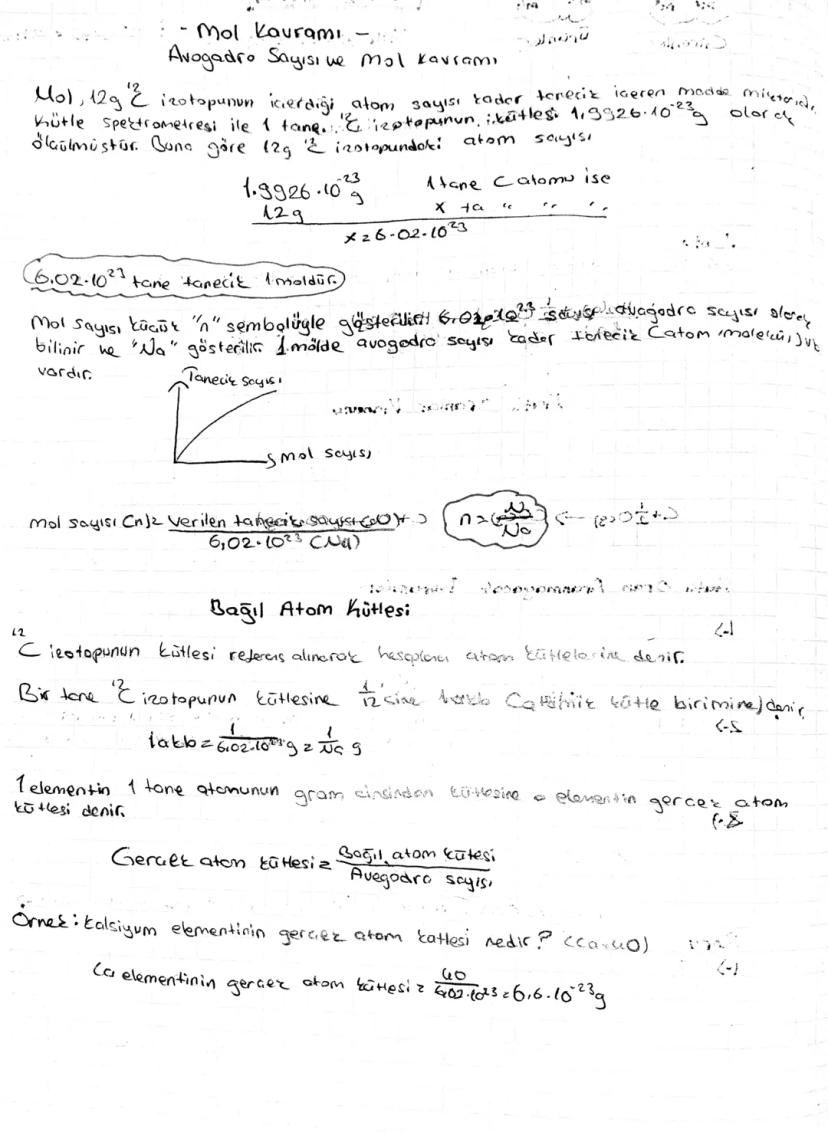 - Mol Kavramı -
Avogadro Sayısı ve Mol Kavramı
Mol, 12g ¹²C izotopunun içerdiği atom sayısı kadar tanecik içeren madde miktarıdır.
Kütle spektrometresi ile 1 tane ¹²C izotopunun kütlesi 1,9926·10⁻²³g olarak
ölçülmüştür. Buna göre 12g ¹²C izotopundaki atom sayısı
1.9926·10⁻²³g 1 tane C atomu ise
12g x ta " " "
x=6.02.10²³
6,02·10²³ tane tanecik 1 moldür.
Mol sayısı küçük "n" sembolüyle gösterilir. 6,02·10²³ sayısı avagadro sayısı olarak
bilinir ve "Na" gösterilir. 1 molde avogadro sayısı kadar tanecik (atom, molekül) vb
vardır.
Tanecik sayısı
mol sayısı
mol sayısı (n)= verilen tanecik sayısı (N)
6,02·10²³ (Na)
n= N
Na
Bağıl Atom Kütlesi
¹²C izotopunun kütlesi referans alınarak hesaplanan atom kütlelerine denir.
Bir tane ¹²C izotopunun kütlesine 1/12'sine 1akb (atomik kütle birimine) denir.
1akb = 1/6.02.10²³ g = 1/Na g
1 elementin 1 tane atomunun gram cinsinden kütlesine o elementin gerçek atom
kütlesi denir.
Gerçek atom kütlesi = Bağıl atom kütesi
Avegadro sayısı
Örnek: kalsiyum elementinin gerçek atom kütlesi nedir? (Ca=40)
Ca elementinin gerçek atom kütlesi = 40/6.02·10²³ = 6,6.10⁻²³g